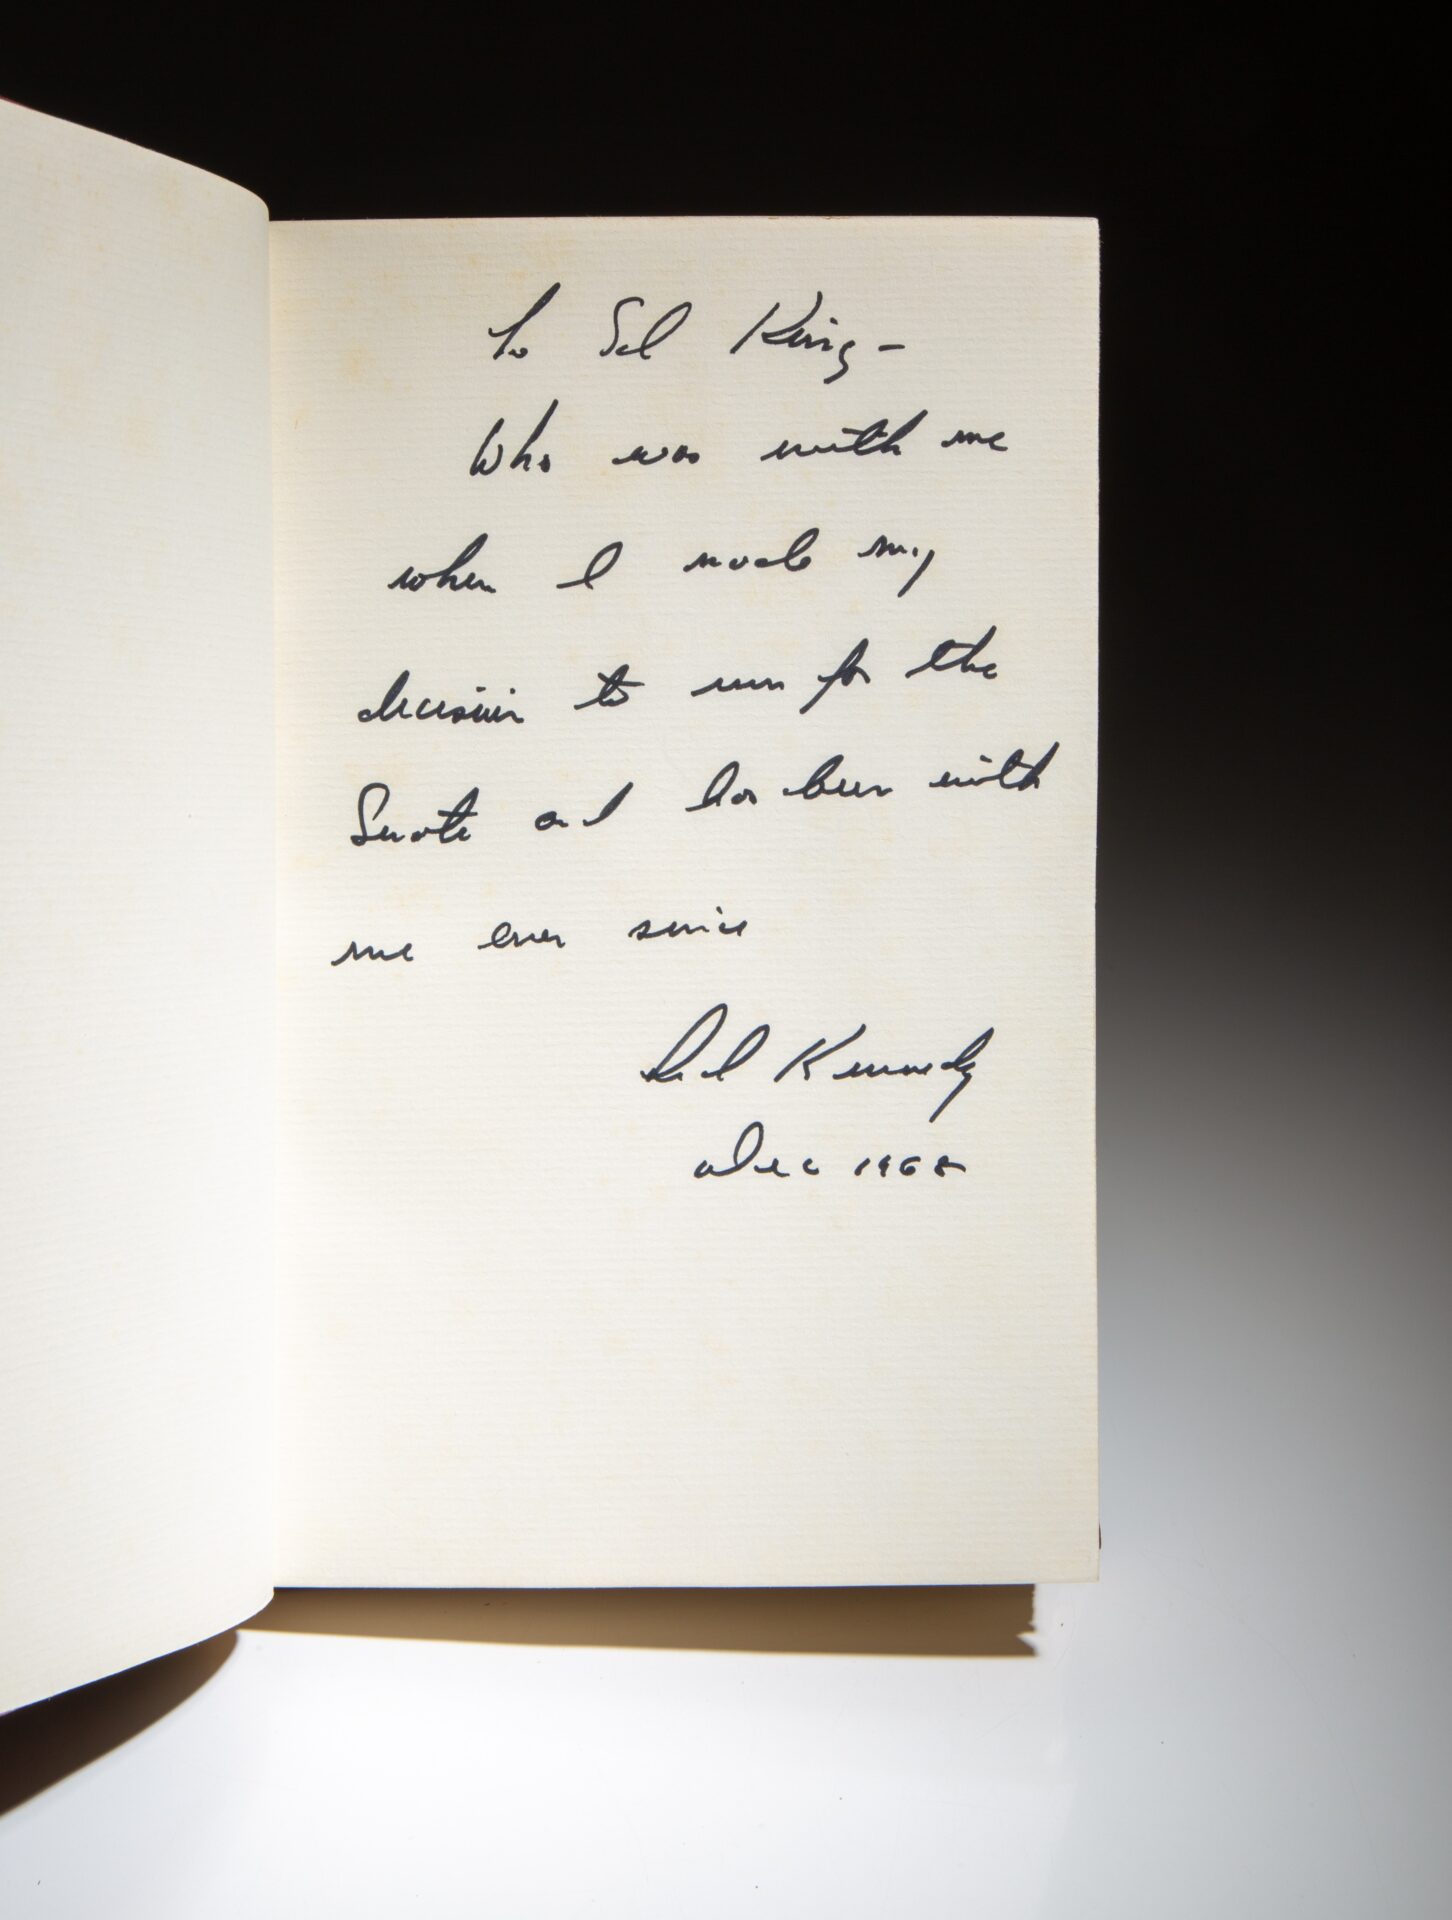 To Sal King –
Who was with me
when I made my
decision to run for the
Senate and has been with
me ever since
Ted Kennedy
Dec 1968